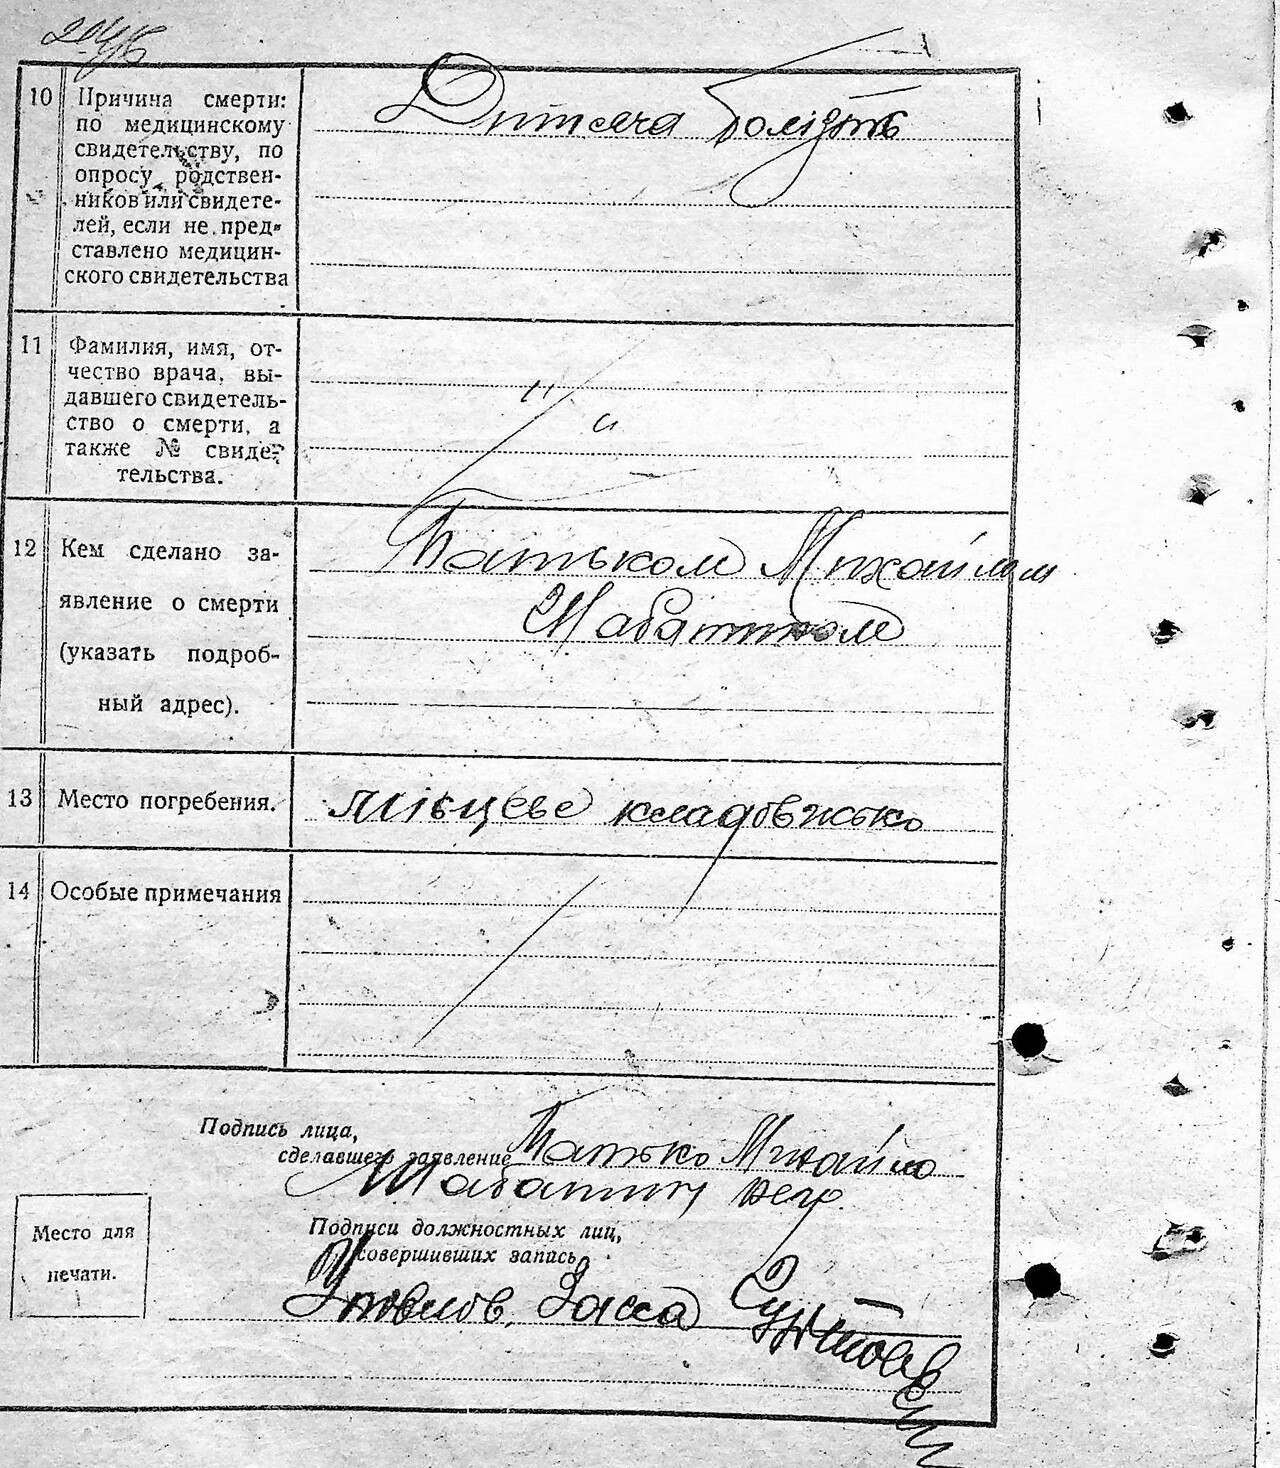 10 Причина смерти:
по медицинскому
свидетельству, по
опросу родствен-
ников или свидете-
лей, если не пред-
ставлено медицин-
ского свидетельства
Дитяча болізть
11 Фамилия, имя, от-
чество врача, вы-
давшего свидетель-
ство о смерти, а
также № свиде-
тельства.
" "
12 Кем сделано за-
явление о смерти
(указать подроб-
ный адрес).
Батьком Михайлом
Шабатином
13 Место погребения.
місцеве кладовисько
14 Особые примечания
Подпись лица,
сделавшего заявление Батько Михайло
Шабатин
Подписи должностных лиц,
совершивших запись
Уповнов. Загса
Место для
печати.